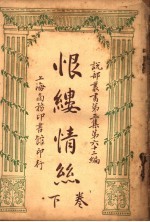 說部叢書第三集第六十三編
恨縷情絲
卷下
上海商務印書館印行